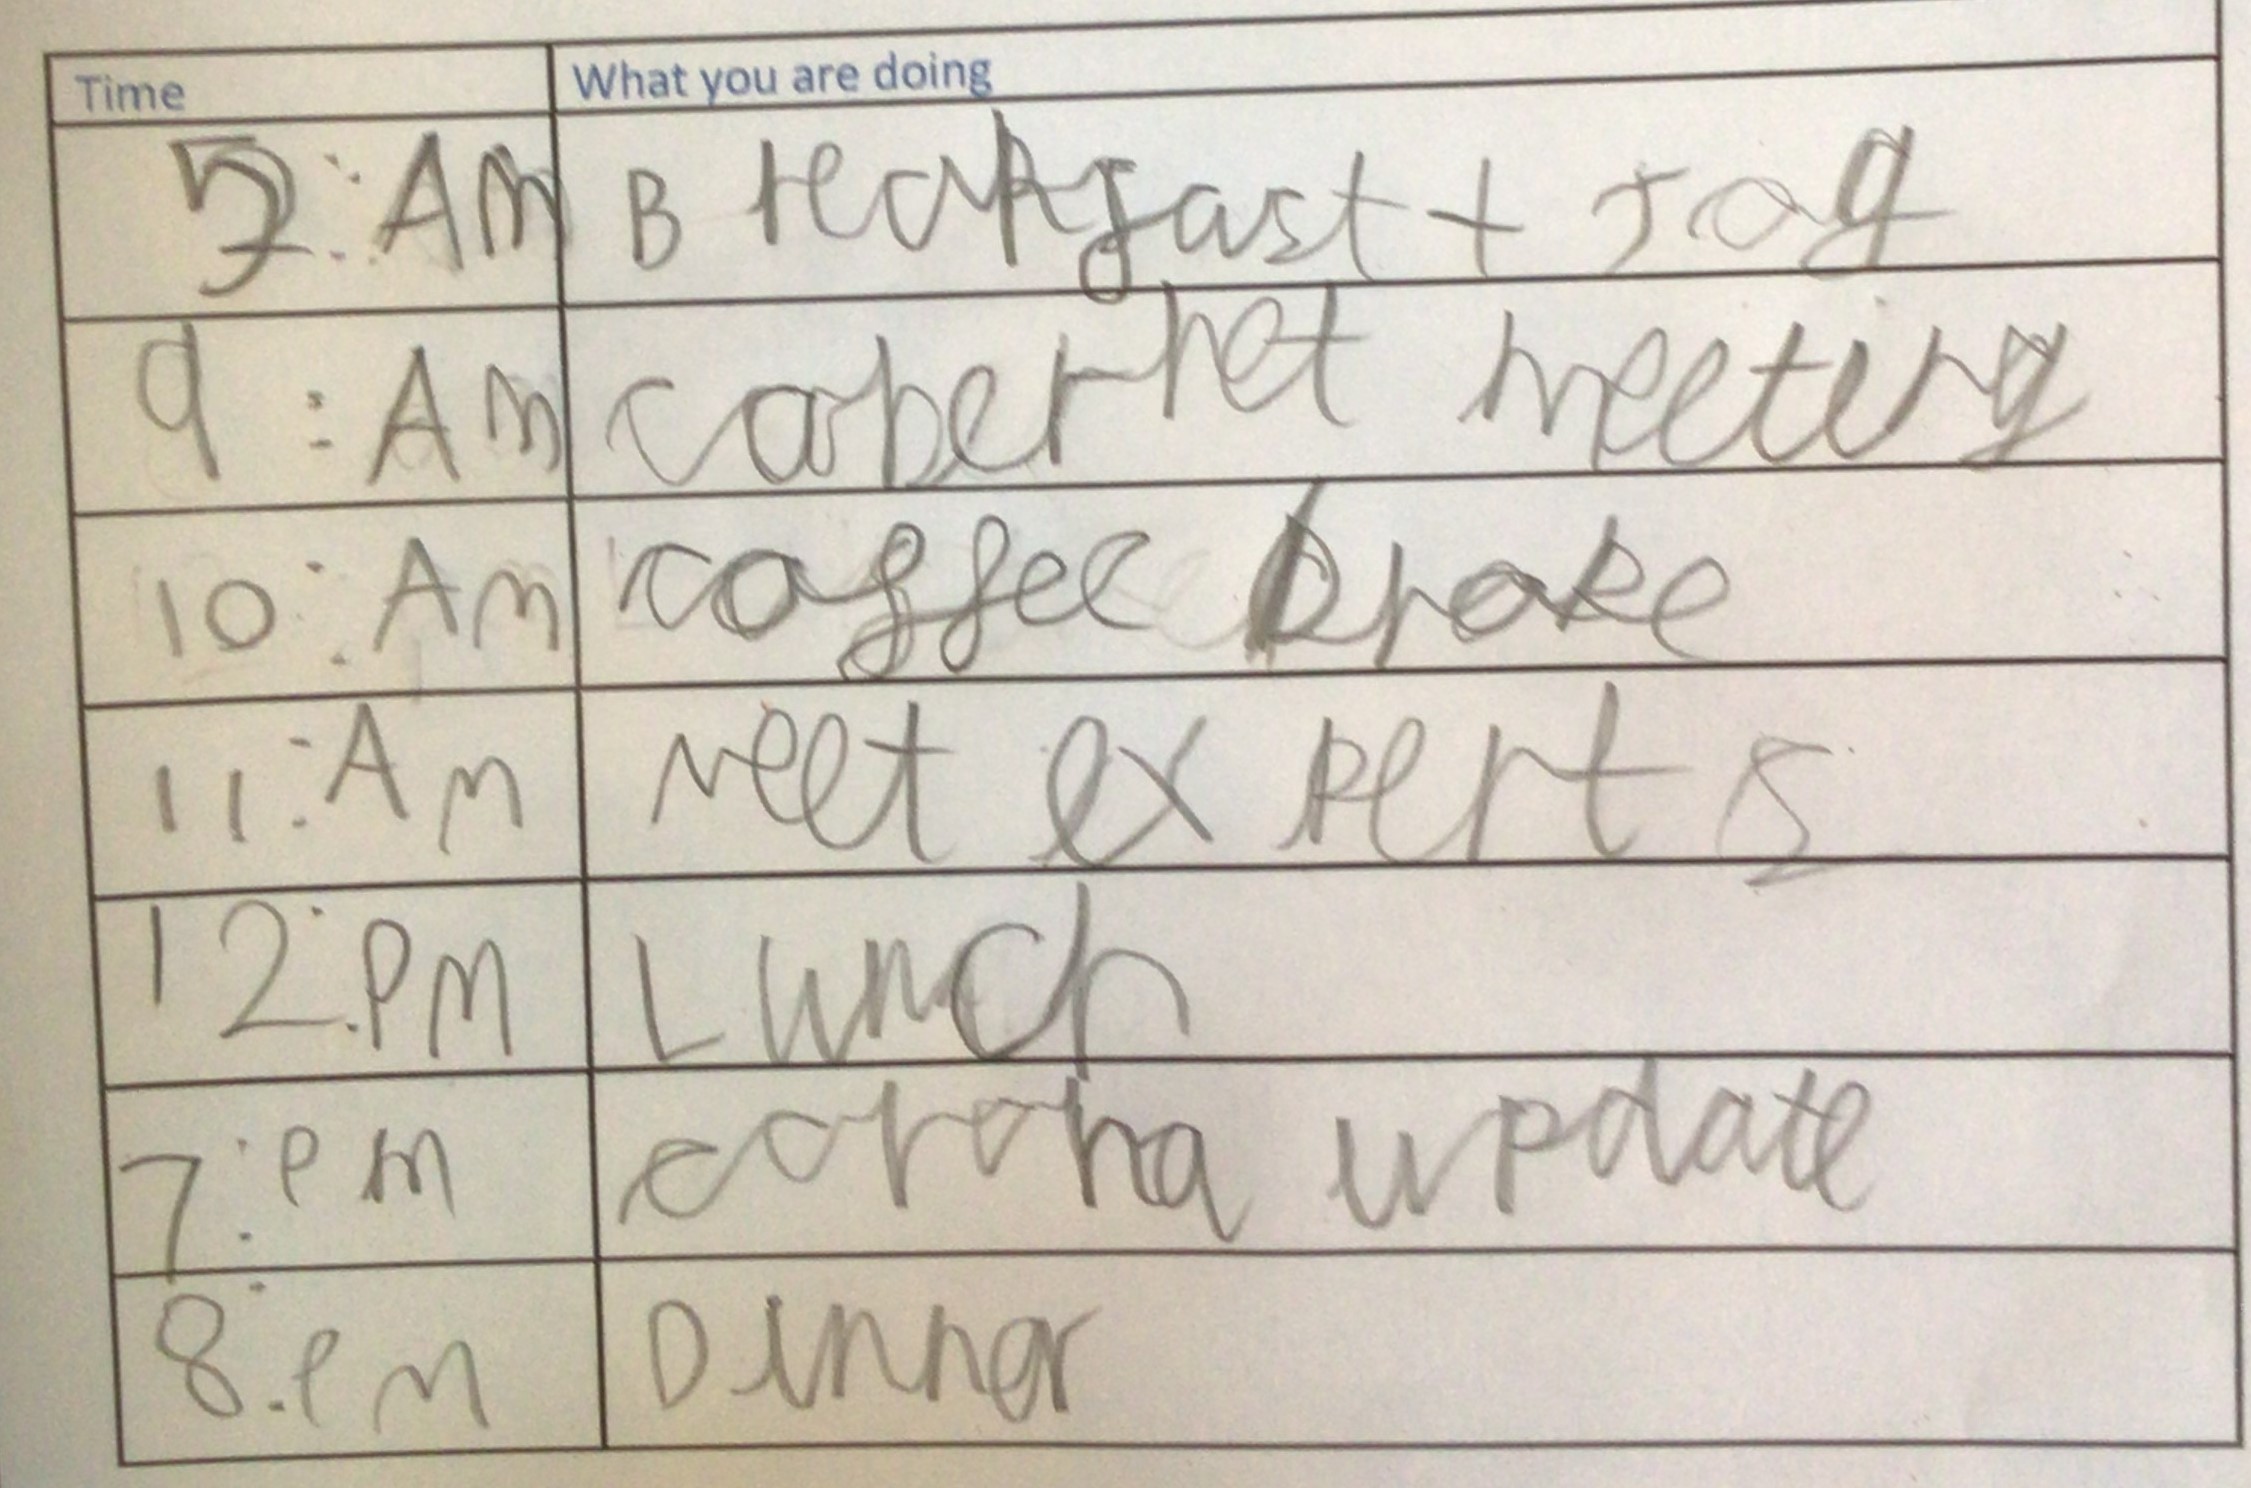 Time What you are doing
: Am Breakfast + Jog
9 : Am cabernet meeting
10 : Am coffee brake
11 : Am meet experts
12 : PM Lunch
7 : pm corona update
8 : pm Dinner